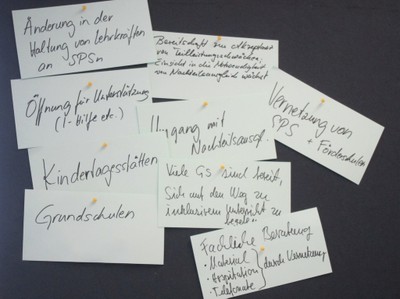 Änderung in der
Haltung von Lehrkräften
an SPSn
Bereitschaft zur Akzeptanz
von Teilleistungsschwächen,
Einsicht in die Notwendigkeit
von Nachteilsausgleich wächst
Öffnung für Unterstützung
(I-Hilfe etc.)
Umgang mit
Nachteilsausgl.
Vernetzung von
SPS + Förderschulen
Kindertagesstätten
Viele GS sind bereit,
sich auf den Weg zu
inklusivem Unterricht zu
Grundschulen
Fachliche Beratung
• Material
• Hospitation
• Telefonate
durch Vernetzung